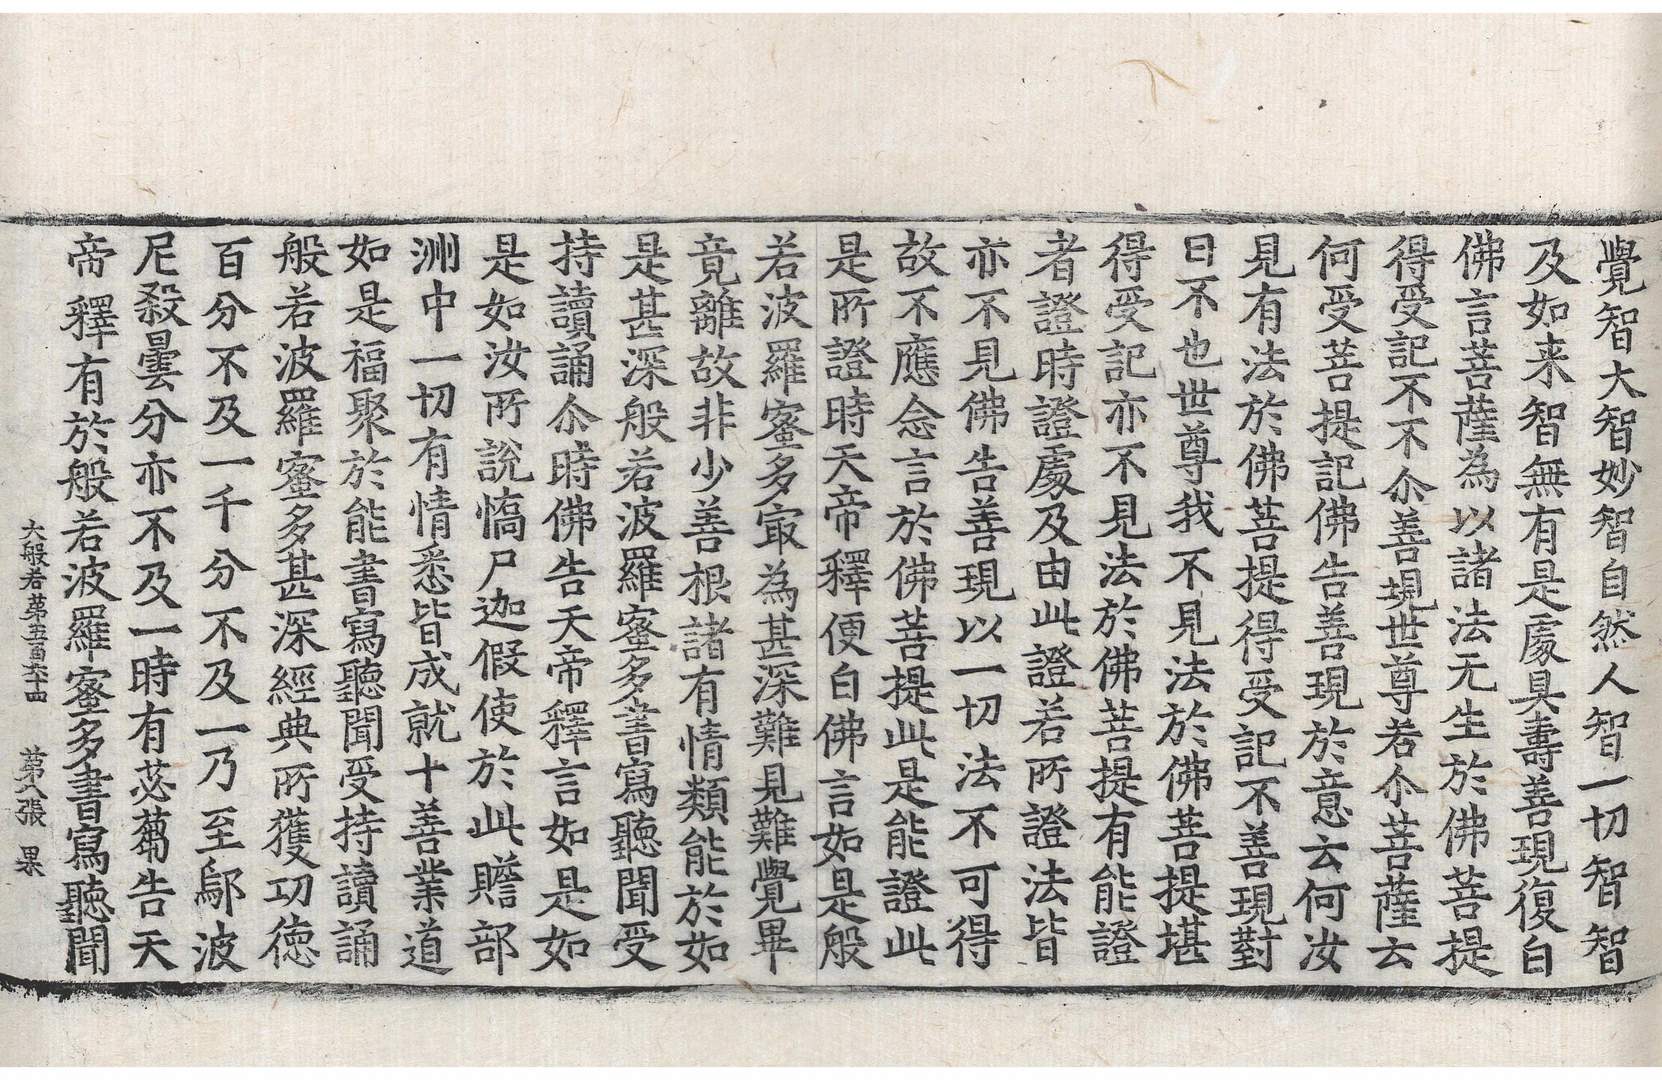 覺智大智妙智自然人智一切智智
及如来智無有是處具壽善現復白
佛言菩薩為以諸法无生於佛菩提
得受記不不尒善現世尊若尒菩薩云
何受菩提記佛告善現於意云何汝
見有法於佛菩提得受記不善現對
曰不也世尊我不見法於佛菩提堪
得受記亦不見法於佛菩提有能證
者證時證處及由此證若所證法皆
亦不見佛告善現以一切法不可得
故不應念言於佛菩提此是能證此
是所證時天帝釋便白佛言如是般
若波羅蜜多㝡為甚深難見難覺畢
竟離故非少善根諸有情類能於如
是甚深般若波羅蜜多書寫聽聞受
持讀誦尒時佛告天帝釋言如是如
是如汝所說憍尸迦假使於此贍部
洲中一切有情悉皆成就十善業道
如是福聚於能書寫聽聞受持讀誦
般若波羅蜜多甚深經典所獲功德
百分不及一千分不及一乃至鄔波
尼殺曇分亦不及一時有苾蒭告天
帝釋有於般若波羅蜜多書寫聽聞
大般若第五百六十四 第八張 果